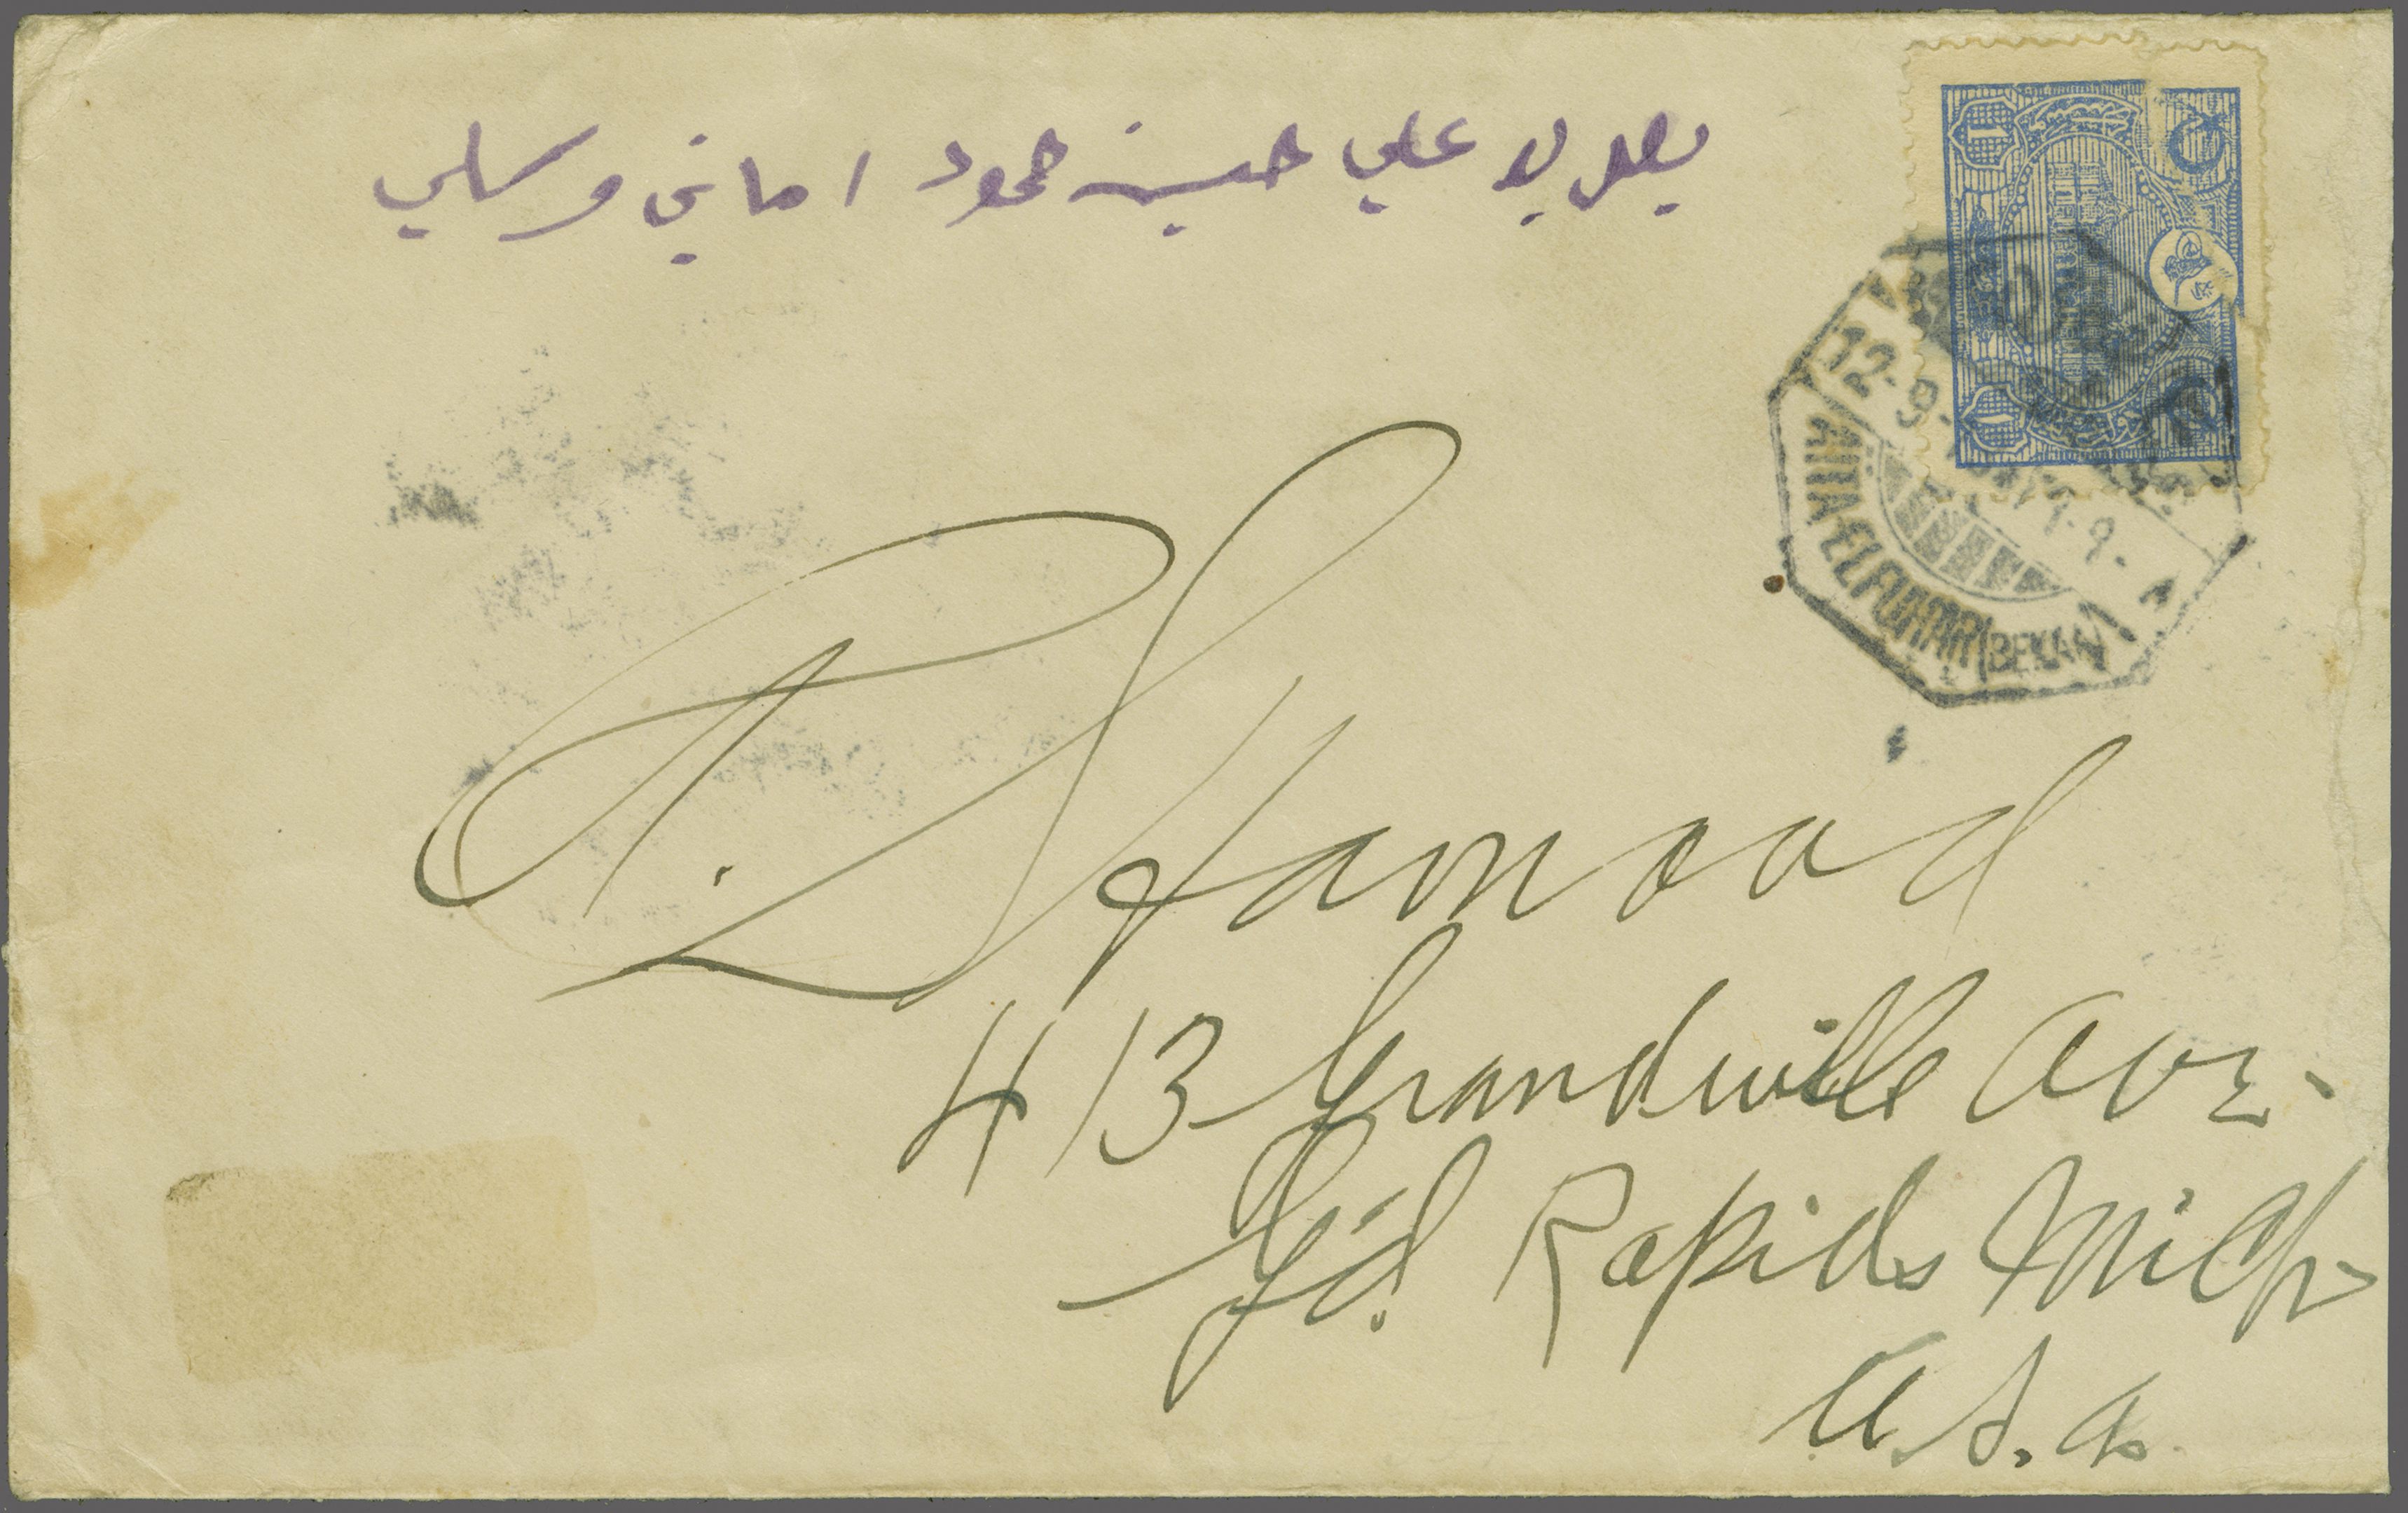 يصل ليد علي حسين حمود اماني وسلي
12-9-
AITA-EL-FUHAR (BEKAA)
A. Hamood
413 Grandville Ave.
Gd. Rapids Mich
U.S.A.